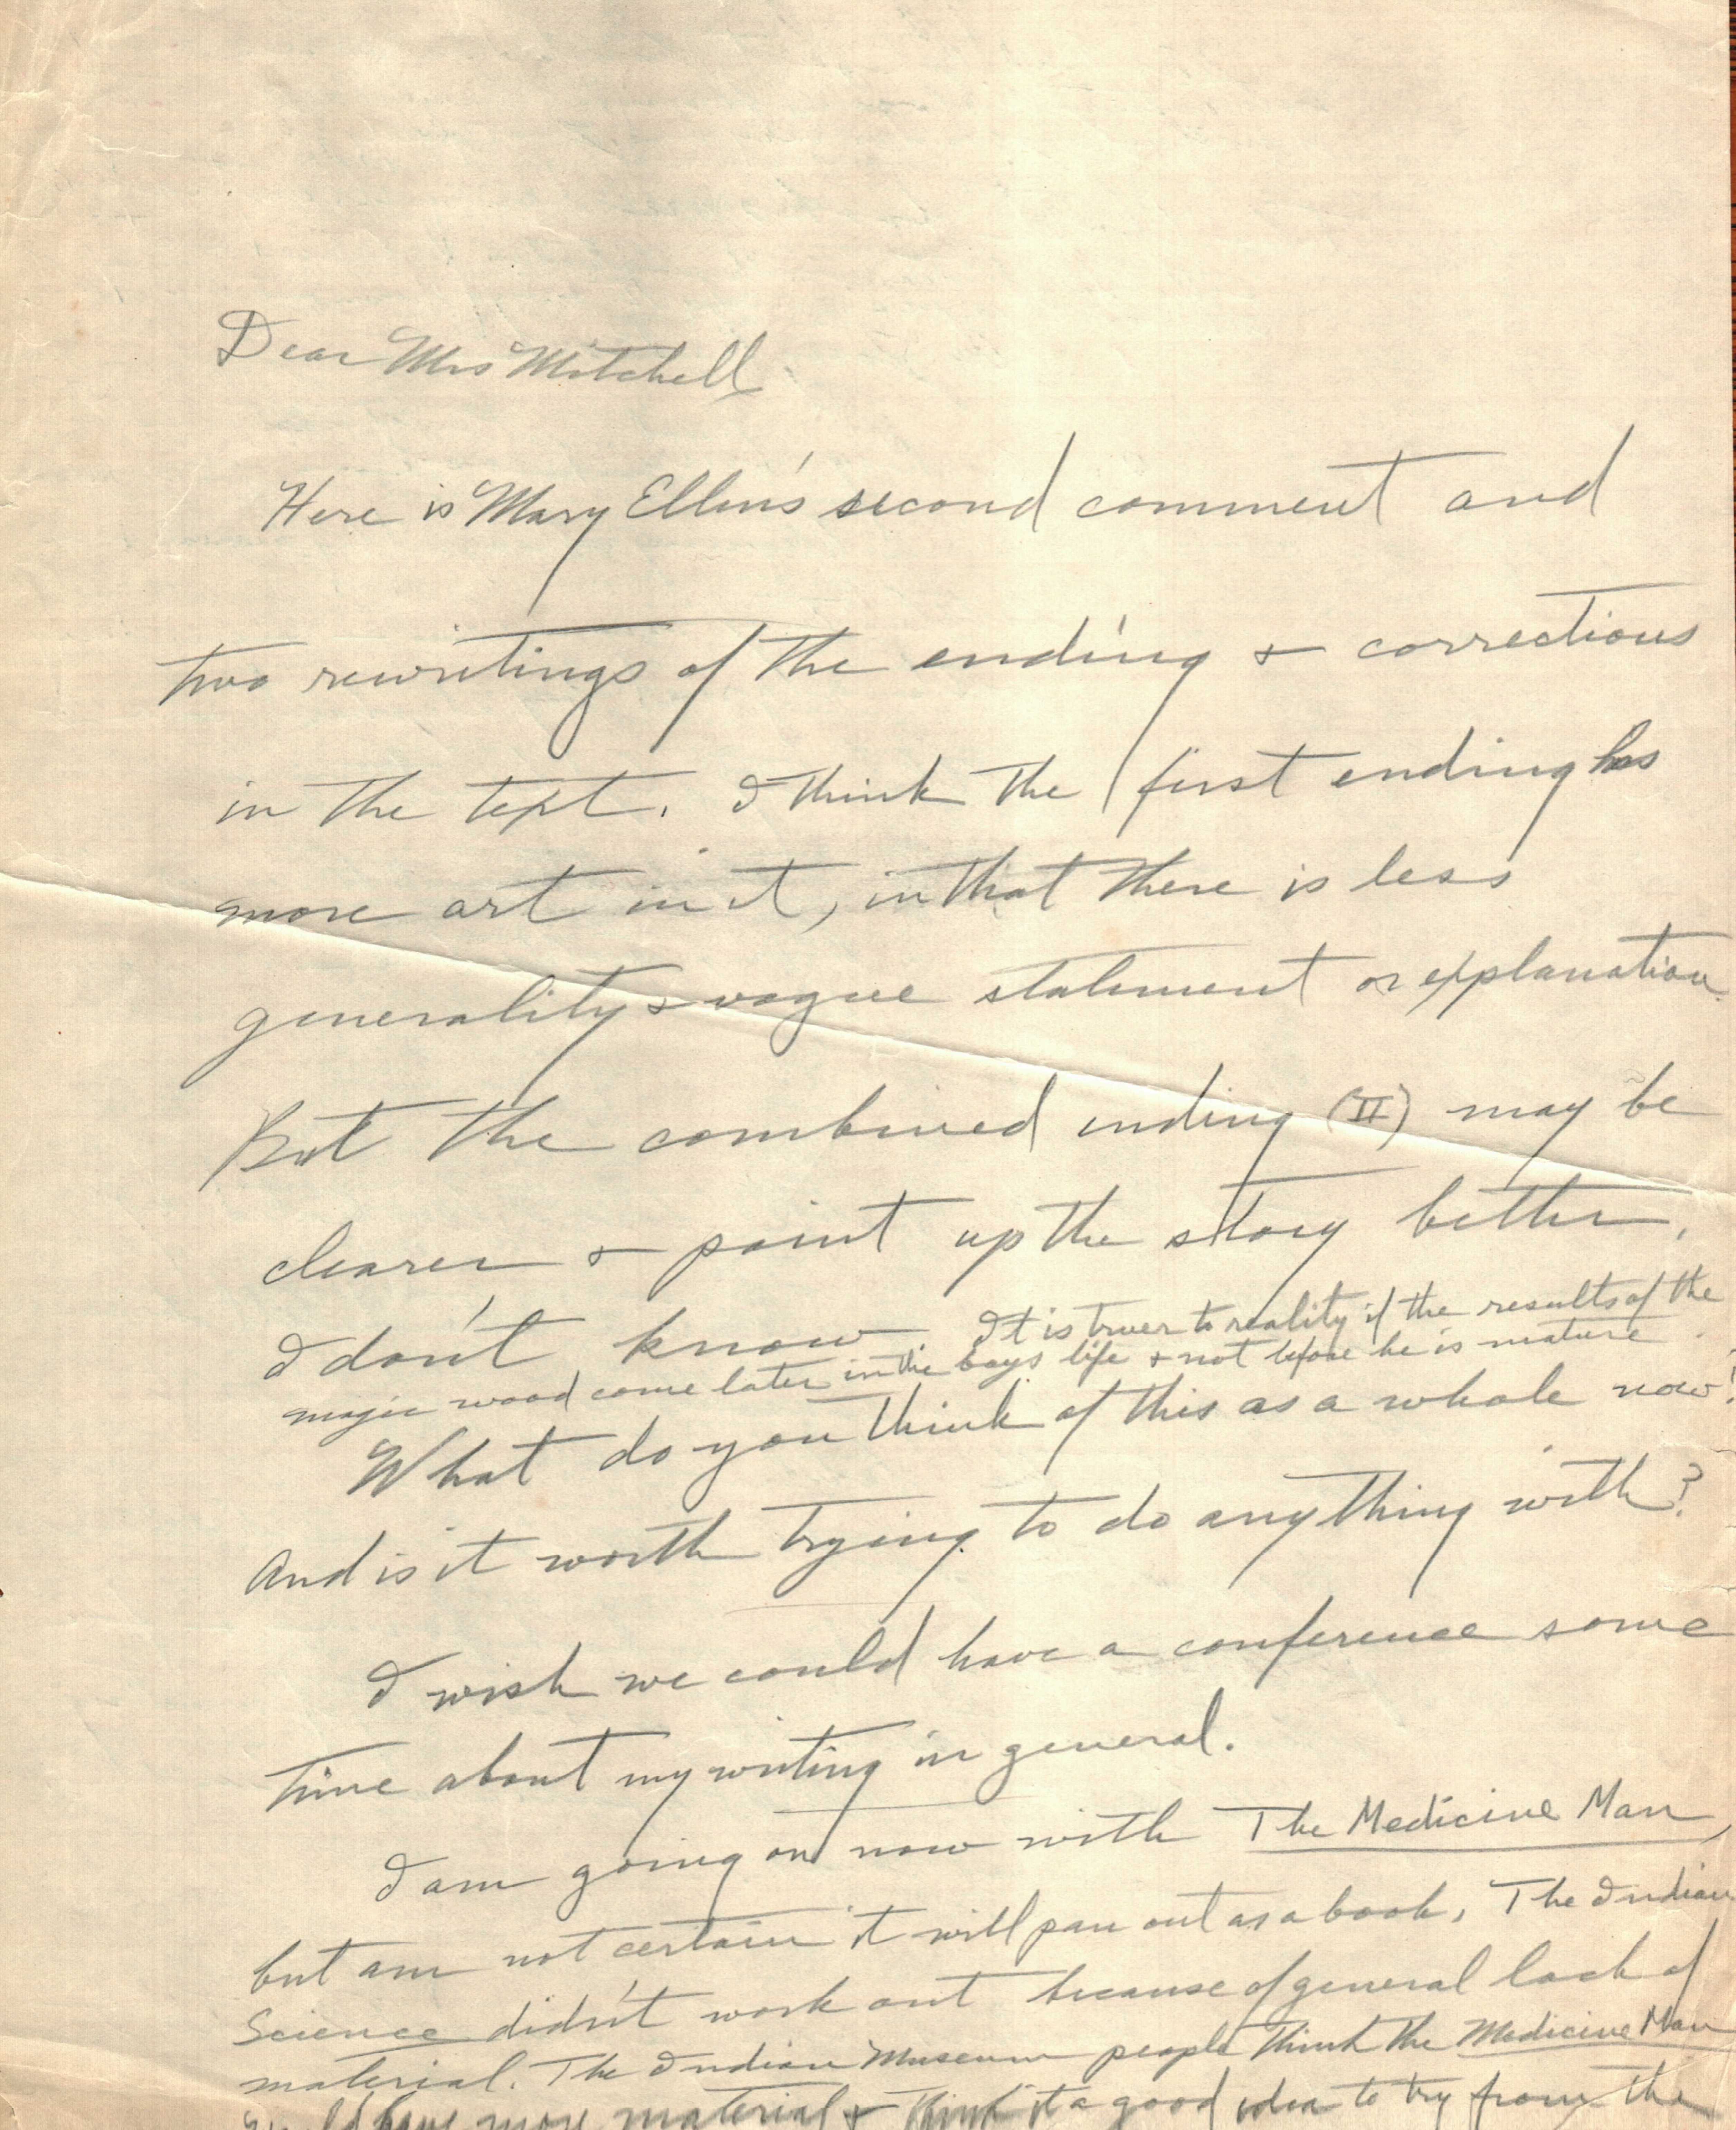 Dear Mrs Mitchell
Here is Mary Ellen's second comment and
two rewritings of the ending & corrections
in the text. I think the first ending has
more art in it, in that there is less
generality & vague statement or explanation.
But the combined ending (II) may be
clearer & point up the story better,
I don't know It is truer to reality if the results of the
magic wood come later in the boys life & not before he is mature.
What do you think of this as a whole now?
And is it worth trying to do anything with?
I wish we could have a conference some
time about my writing in general.
I am going on now with The Medicine Man,
but am not certain it will pan out as a book. The Indian
Science didn't work out because of general lack of
material. The Indian Museum people think the Medicine Man
would have more material & think it a good idea to try from the